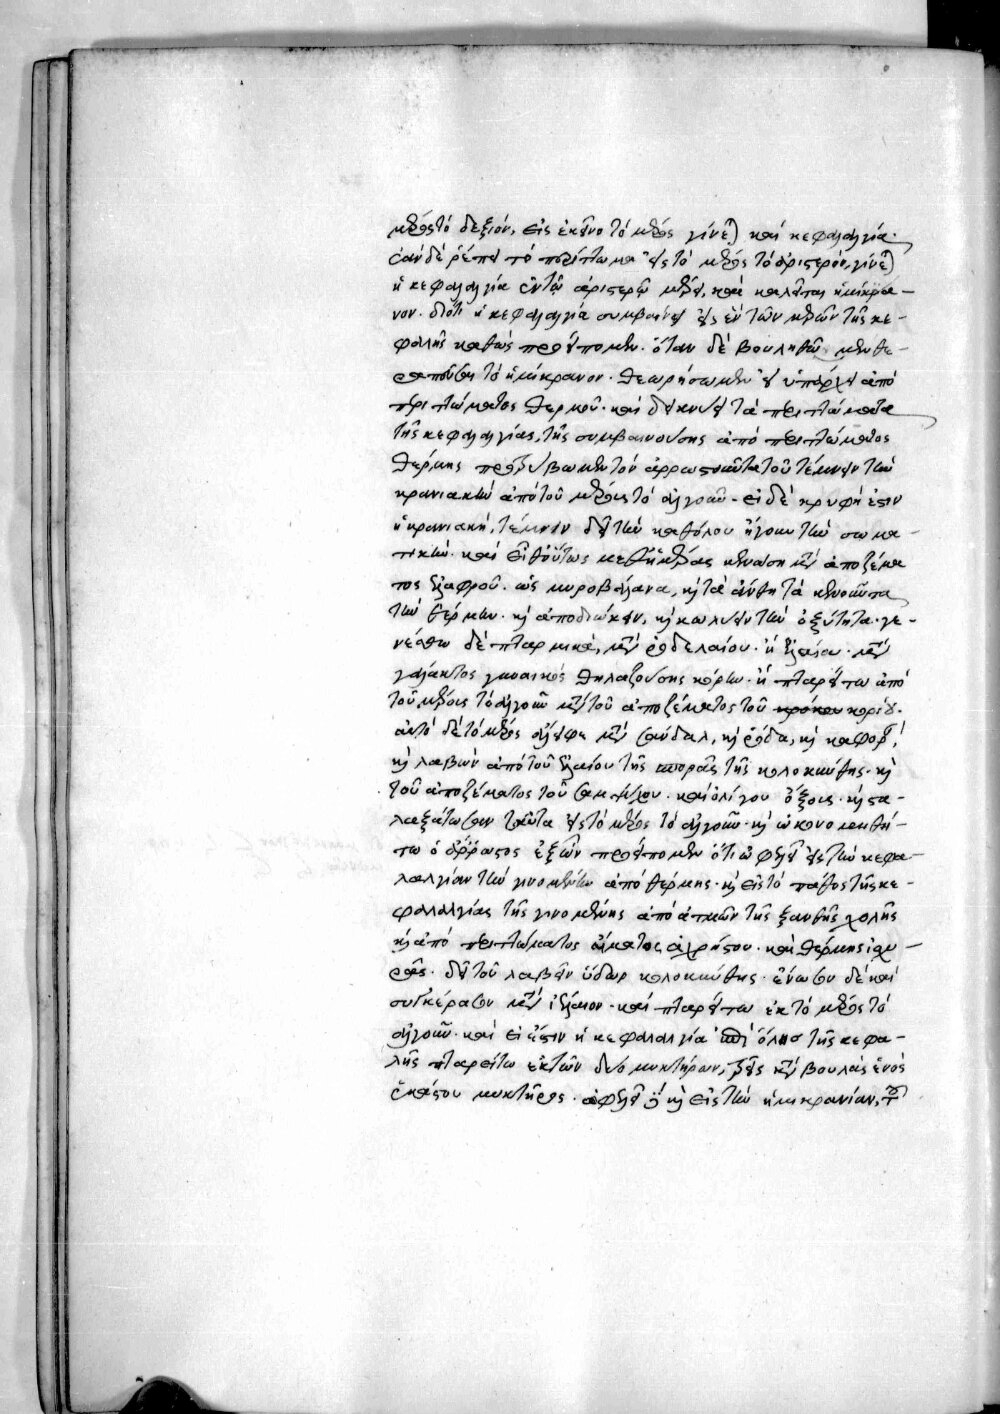 μέρος τὸ δεξιόν, εἰς ἐκεῖνο τὸ μέρος γίνεται καὶ κεφαλαλγία.
ἐὰν δὲ ῥέπει τὸ περίττωμα εἰς τὸ μέρος τὸ ἀριστερόν, γίνεται
ἡ κεφαλαλγία ἐν τῷ ἀριστερῷ μέρει, καὶ καλεῖται ἡμίκρα-
νον. διότι ἡ κεφαλαλγία συμβαίνει εἰς ἓν τῶν μερῶν τῆς κε-
φαλῆς καθὼς προείπομεν. ὅταν δὲ βουληθῶμεν θε-
ραπεῦσαι τὸ ἡμίκρανον. θεωρήσωμεν εἰ ὑπάρχει ἀπὸ
περιττώματος θερμοῦ. καὶ δεικνύει τὰ περιττώματα
τῆς κεφαλαλγίας, τῆς συμβαινούσης ἀπὸ περιττώματος
θέρμης τὸν ἄρρωστον τοῦ τέμνειν τὴν
κρανιακὴν ἀπὸ τοῦ μέρους τὸ ἀλγοῦν. εἰ δὲ κρυφή ἐστιν
ἡ κρανιακή, τέμνειν δεῖ τὴν καθόλου ἤγουν τὴν σωμα-
τικήν. καὶ εἶθ' οὕτως μεθ' ἡμέρας κενῶσαι μετὰ ἀποζέμα
τος ἐλαφροῦ. ὡς μυροβάλανα, καὶ τὰ ἄνθη τὰ κενοῦντα
τὴν θέρμην. καὶ ἀποδιώκειν, καὶ κωλύειν τὴν ὀξύτητα. γε-
νέσθω δὲ πταρμικὰ, μετὰ ῥοδελαίου. ἢ ἐλαίου μετὰ
γάλακτος γυναικὸς θηλαζούσης κόρην. ἢ πταρείτω ἀπὸ
τοῦ μέρους τὸ ἀλγοῦν μετὰ τοῦ ἀποζέματος τοῦ κρόκου κορίου.
αὐτὸ δὲ τὸ μέρος ἄλειφε μετὰ σάνδαλ, καὶ ῥόδα, καὶ καφορά,
καὶ λαβὼν ἀπὸ τοῦ ἐλαίου τῆς σπορᾶς τῆς κολοκύνθης. καὶ
τοῦ ἀποζέματος τοῦ σαμψύχου. καὶ ὀλίγου ὄξους. καὶ στα-
λαξάτωσαν ταῦτα εἰς τὸ μέρος τὸ ἀλγοῦν. καὶ οἰκονομηθή-
τω ὁ ἄρρωστος ἐξ ὧν προείπομεν ὅτι ὠφελεῖ εἰς τὴν κεφα-
λαλγίαν τὴν γινομένην ἀπὸ θέρμης. καὶ εἰς τὸ πάθος τῆς κε-
φαλαλγίας τῆς γινομένης ἀπὸ ἀτμῶν τῆς ξανθῆς χολῆς
καὶ ἀπὸ περιττώματος αἵματος ἀχρήστου. καὶ θέρμης ἰσχυ-
ρᾶς. δεῖ τοῦ λαβεῖν ὕδωρ κολοκύνθης. ἕνωσον δὲ καὶ
συγκέρασον μετὰ ἔλαιον. καὶ πταρείτω ἐκ τὸ μέρος τὸ
ἀλγοῦν. καὶ εἰ ἔστιν ἡ κεφαλαλγία ἐπὶ ὅλης τῆς κεφα-
λῆς πταρείτω ἐκ τῶν δύο μυκτήρων, βουλὰς ἑνὸς
ἑκάστου μυκτῆρος. ὠφελεῖ καὶ εἰς τὴν ἡμικρανίαν,